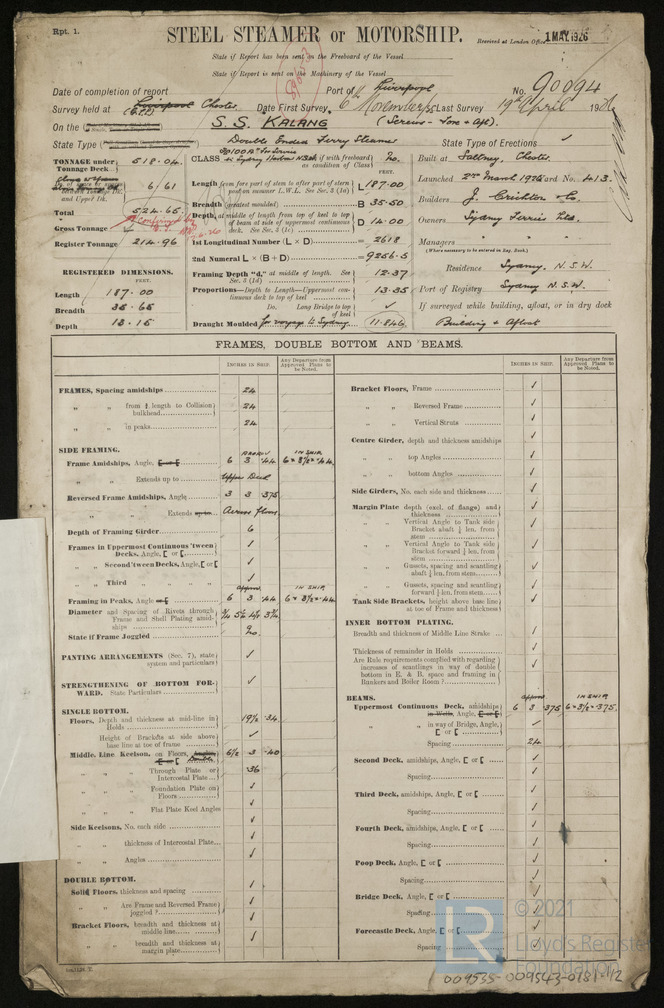 Rpt. 1.
STEEL STEAMER OR MOTORSHIP.
Received at London Office 1 MAY 1926
State if Report has been sent on the Freeboard of the Vessel
State if Report is sent on the Machinery of the Vessel
Date of completion of report Port of Liverpool No. 90094
Survey held at Liverpool Chester Date First Survey 6th November Last Survey 19th April 1926
On the S. S. KALANG (Screws - Fore & Aft).
State Type Double Ended Ferry Steamer State Type of Erections ✓
TONNAGE under Tonnage Deck 518.04
6.61
Total 524.65
Gross Tonnage
Register Tonnage 214.96
REGISTERED DIMENSIONS.
FEET.
Length 187.00
Breadth 35.65
Depth 13.15
CLASS (if with freeboard as condition of Class) No.
FEET.
Length from fore part of stem to after part of stern post on summer L.W.L. See Sec. 3 (1a) L 187.00
Breadth (greatest moulded) B 35.50
Depth, at middle of length from top of keel to top of beam at side of uppermost continuous deck. See Sec. 3 (1c) D 14.00
1st Longitudinal Number (L × D) = 2618
2nd Numeral L × (B + D) = 9256.5
Framing Depth "d," at middle of length. See Sec. 3 (1d) 12.37
Proportions—Depth to Length—Uppermost continuous deck to top of keel 13.35
Do. Long Bridge to top of keel ✓
Draught Moulded for voyage to Sydney 11.846
Built at Saltney, Chester.
Launched 2nd March 1926 Yard No. 413.
Builders J. Crichton & Co.
Owners Sydney Ferries Ltd.
Managers " " "
(Where necessary to be entered in Reg. Book.)
Residence Sydney. N.S.W.
Port of Registry Sydney N.S.W.
If surveyed while building, afloat, or in dry dock
Building & Afloat
FRAMES, DOUBLE BOTTOM AND BEAMS.
INCHES IN SHIP.
Any Departure from Approved Plans to be Noted.
FRAMES, Spacing amidships 24
" " from ⅕ length to Collision bulkhead 24
" " in peaks 24
SIDE FRAMING.
Frame Amidships, Angle, 6 3 .44 IN SHIP 6 × 3½ × .44
" " Extends up to Upper Deck
Reversed Frame Amidships, Angle 3 3 .375
" " Extends Across floors
Depth of Framing Girder 6
Frames in Uppermost Continuous 'tween Decks, Angle, [ or [ ✓
" " Second 'tween Decks, Angle, [ or [ ✓
" " Third " " " " ✓
Framing in Peaks, Angle Approved 6 3 .44 IN SHIP 6 × 3½ × .44
Diameter and Spacing of Rivets through Frame and Shell Plating amidships
State if Frame Joggled No.
PANTING ARRANGEMENTS (Sec. 7), state system and particulars ✓
STRENGTHENING OF BOTTOM FORWARD. State Particulars ✓
SINGLE BOTTOM.
Floors, Depth and thickness at mid-line in Holds 19½ .34
Height of Brackets at side above base line at toe of frame ✓
Middle Line Keelson, on Floors, 6½ 3 .40
" " Through Plate or Intercostal Plate .36
" " Foundation Plate on Floors ✓
" " Flat Plate Keel Angles ✓
Side Keelsons, No. each side ✓
" " thickness of Intercostal Plate ✓
" " Angles ✓
DOUBLE BOTTOM.
Solid Floors, thickness and spacing ✓
" " Are Frame and Reversed Frame joggled? ✓
Bracket Floors, breadth and thickness at middle line ✓
" " breadth and thickness at margin plate ✓
INCHES IN SHIP.
Any Departure from Approved Plans to be Noted.
Bracket Floors, Frame ✓
" " Reversed Frame ✓
" " Vertical Struts ✓
Centre Girder, depth and thickness amidships ✓
" " top Angles ✓
" " bottom Angles ✓
Side Girders, No. each side and thickness ✓
Margin Plate depth (excl. of flange) and thickness ✓
" " Vertical Angle to Tank side Bracket abaft ¼ len. from stem ✓
" " Vertical Angle to Tank side Bracket forward ¼ len. from stem ✓
" " Gussets, spacing and scantling abaft ¼ len. from stem ✓
" " Gussets, spacing and scantling forward ¼ len. from stem ✓
Tank Side Brackets, height above base line at toe of Frame and thickness ✓
INNER BOTTOM PLATING.
Breadth and thickness of Middle Line Strake ✓
Thickness of remainder in Holds ✓
Are Rule requirements complied with regarding increases of scantlings in way of double bottom in E. & B. space and framing in Bunkers and Boiler Room? ✓
BEAMS.
Uppermost Continuous Deck, amidships Approved 6 3 .375 IN SHIP 6 × 3½ × .375
" " in way of Bridge, Angle, [ or [ ✓
Spacing 24
Second Deck, amidships, Angle, [ or [ ✓
Spacing ✓
Third Deck, amidships, Angle, [ or [ ✓
Spacing ✓
Fourth Deck, amidships, Angle, [ or [ ✓
Spacing ✓
Poop Deck, Angle, [ or [ ✓
Spacing ✓
Bridge Deck, Angle, [ or [ ✓
Spacing ✓
Forecastle Deck, Angle, [ or [ ✓
Spacing ✓
LR © 2021
Lloyd's Register
Foundation
009535-009543-0181-1/2